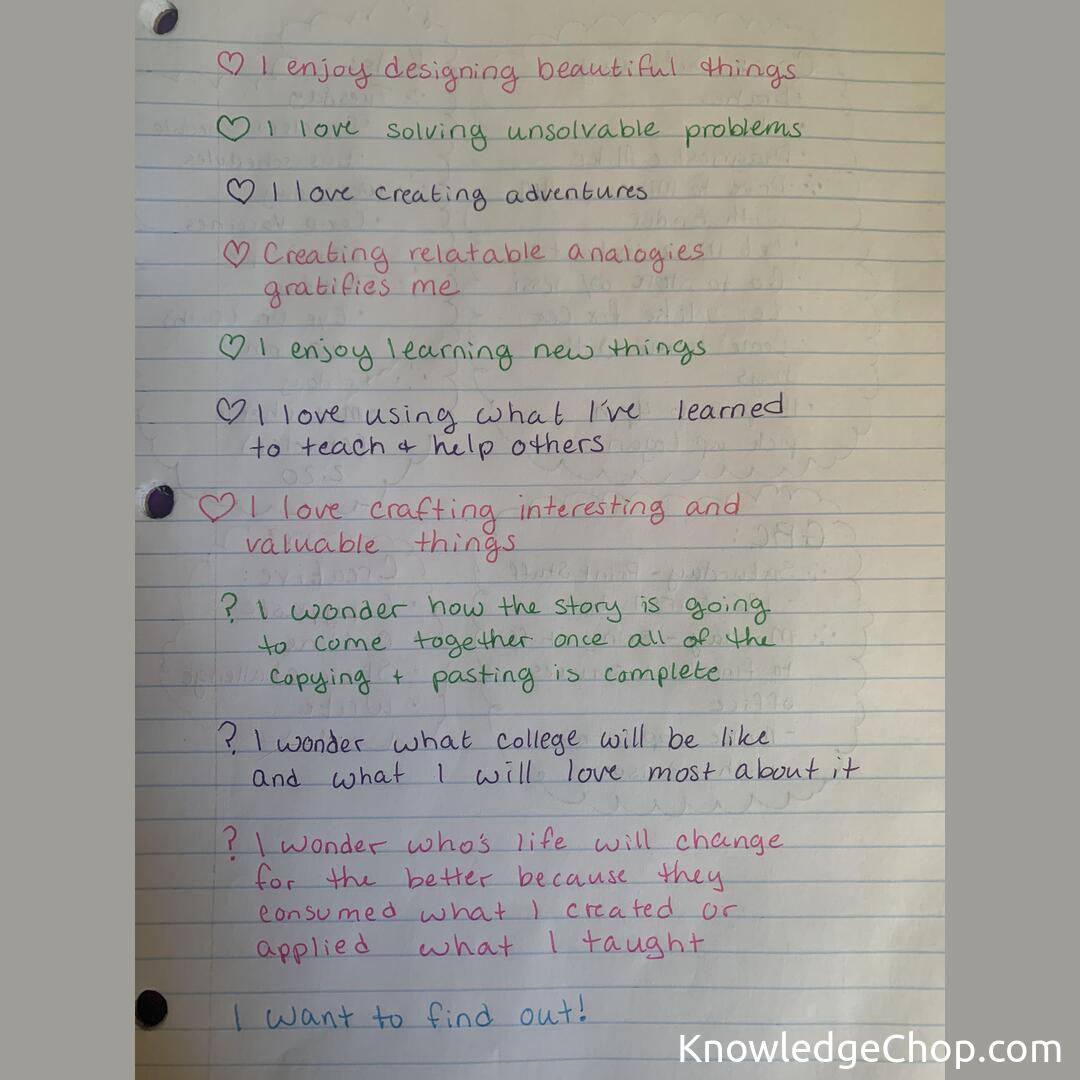 ♡ I enjoy designing beautiful things
♡ I love solving unsolvable problems
♡ I love creating adventures
♡ Creating relatable analogies
gratifies me
♡ I enjoy learning new things
♡ I love using what I've learned
to teach & help others
♡ I love crafting interesting and
valuable things
? I wonder how the story is going
to come together once all of the
copying + pasting is complete
? I wonder what college will be like
and what I will love most about it
? I wonder who's life will change
for the better because they
consumed what I created or
applied what I taught
I want to find out!
KnowledgeChop.com